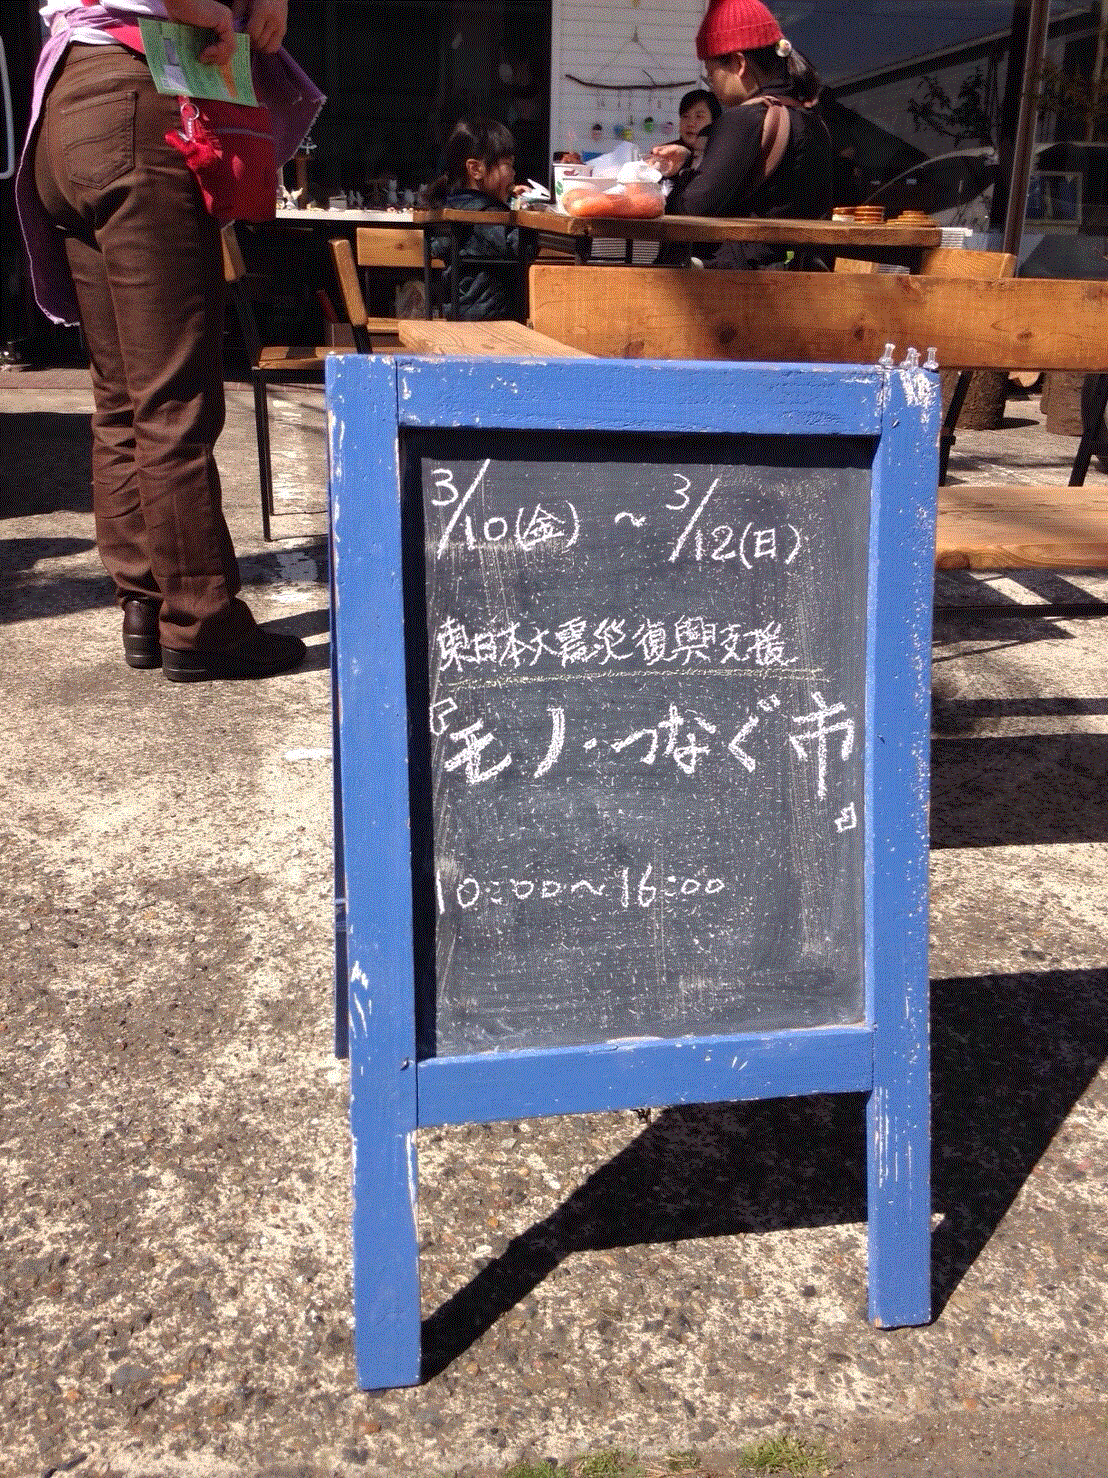 3/10(金) ~ 3/12(日)
東日本大震災復興支援
『モノ・つなぐ市』
10:00~16:00